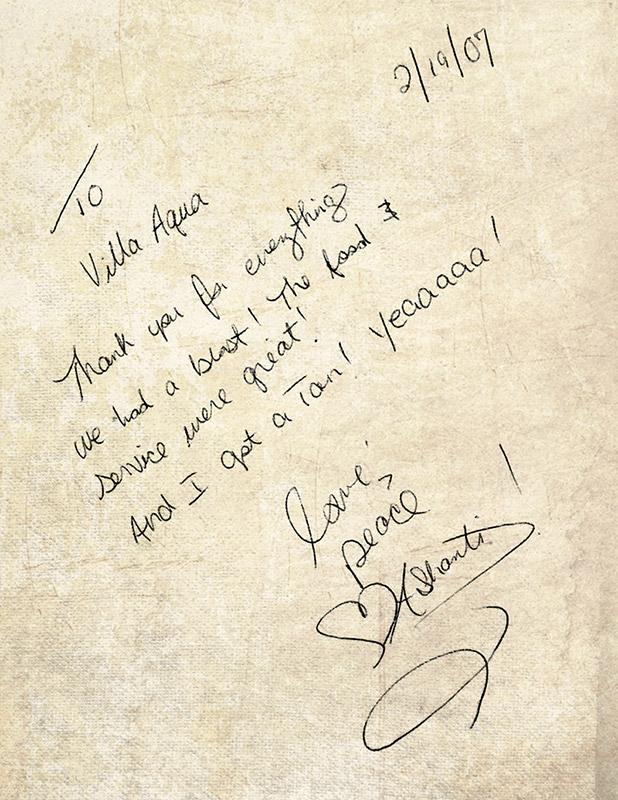 2/19/07
To
Villa Aqua
Thank you for everything
we had a blast! The food &
service were great!
And I got a Tan! Yeaaaaa!
Love,
peace
Ashanti